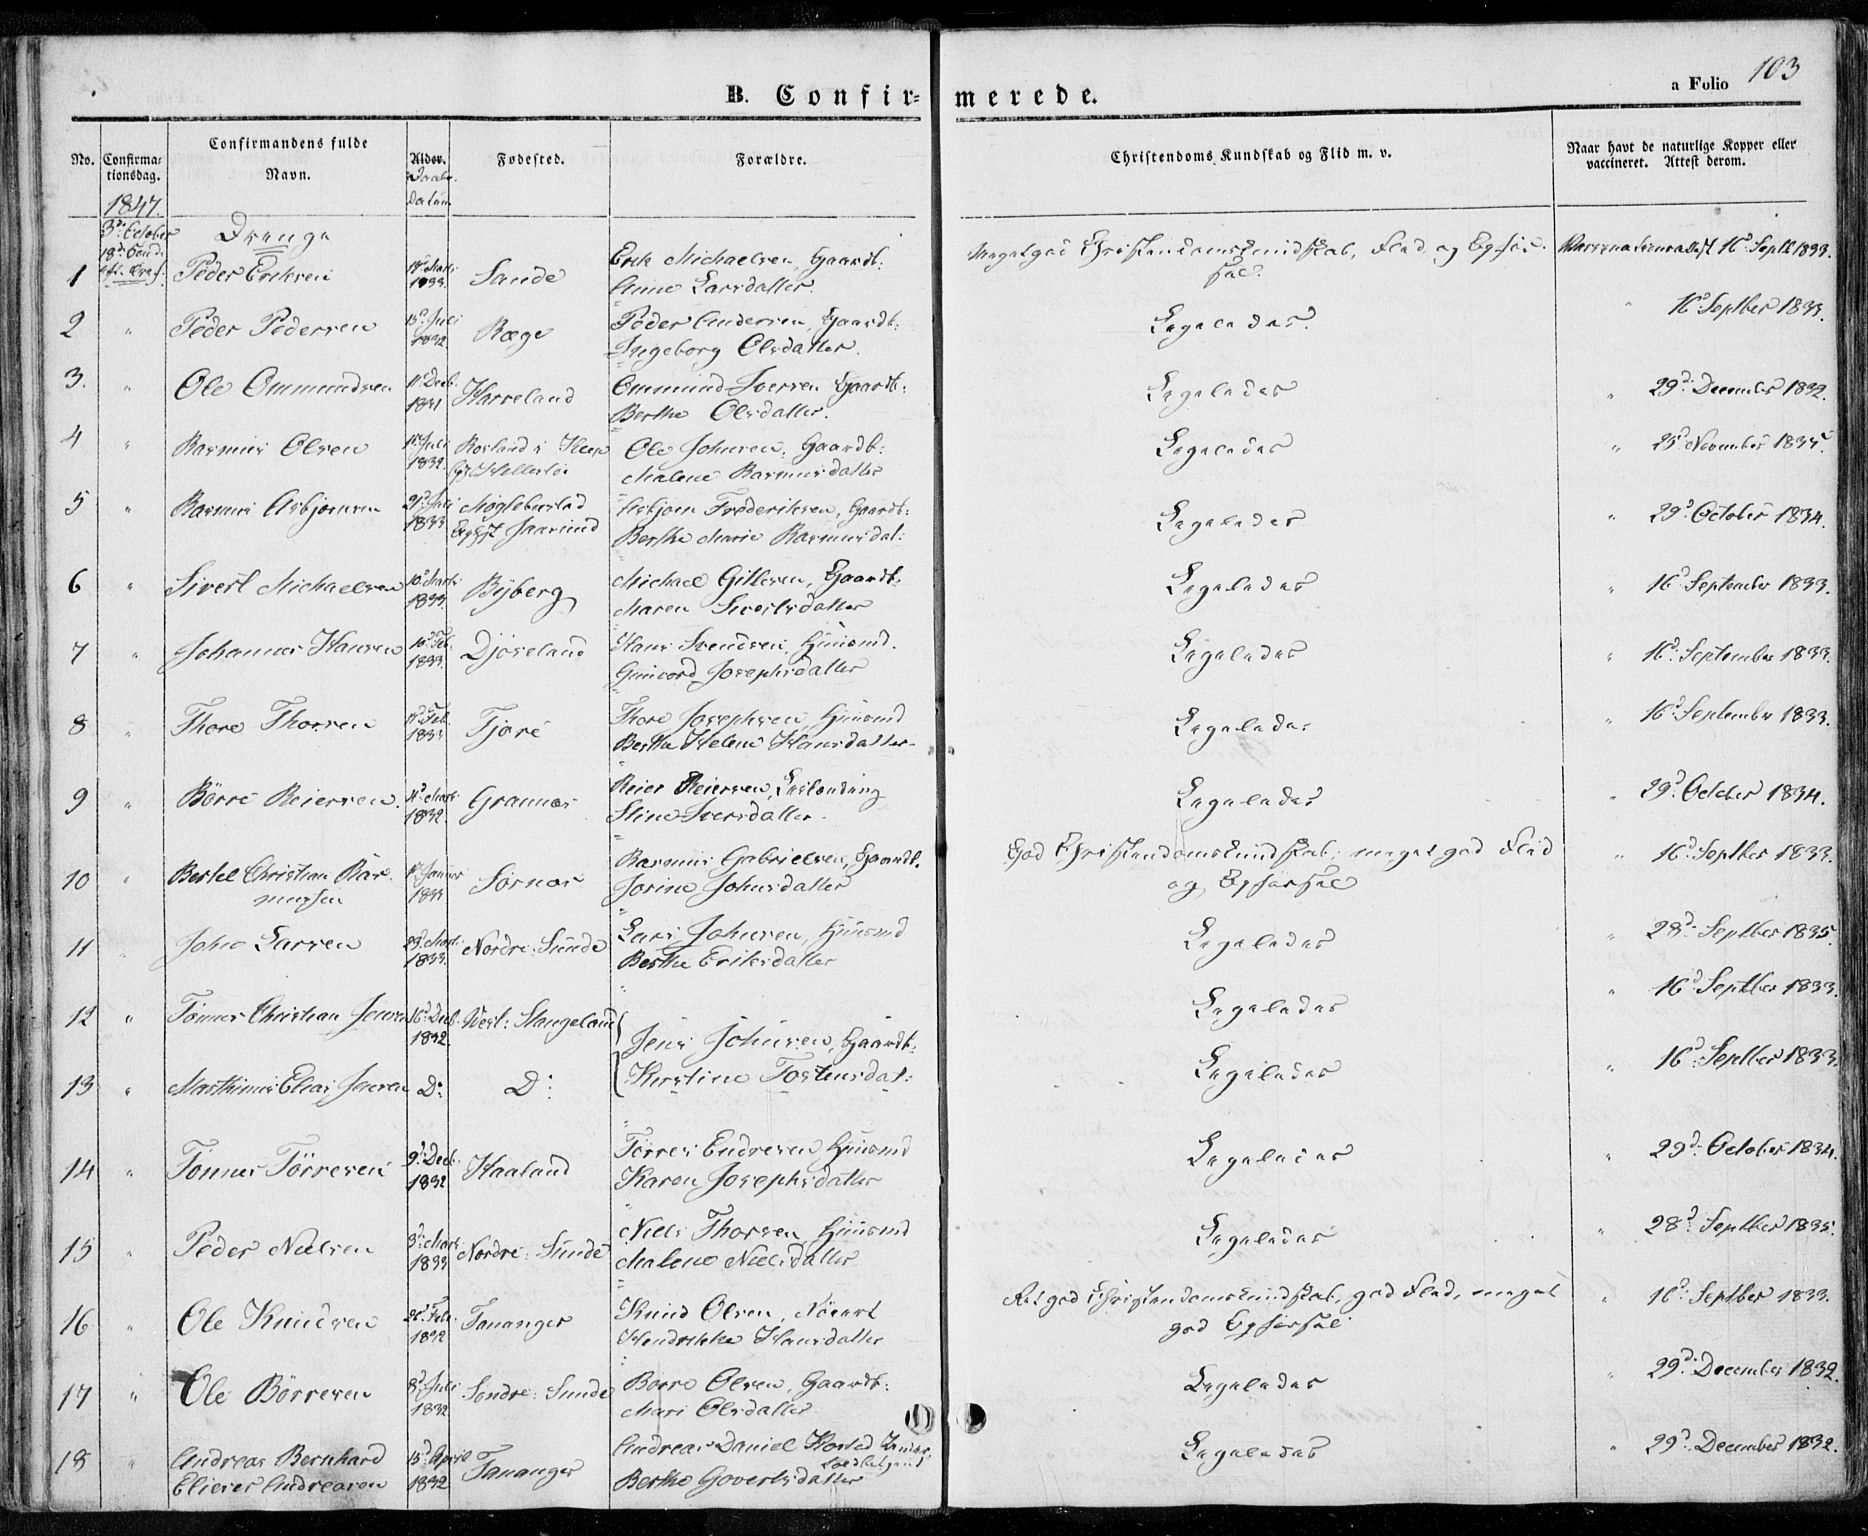 103
B. Confirmerede.
a Folio
No.
Confirmationsdag.
Confirmandens fulde Navn.
Alder.
Daabs-
datum
Fødested.
Forældre.
Christendoms Kundskab og Flid m. v.
Naar havt de naturlige Kopper eller vaccineret. Attest derom.
1847.
3d. October
18d. Sønd.
Drenge
1 Peder Eriksen 1833 Sande Erik Michaelsen, Gaardb: Meget god Christendomskundskab, Flid og Opfør- 16d. Septb 1833.
Anne Larsdatter. sel.
2 " Peder Pedersen 15d. Juli 1832 Ræge Peder Andersen, Gaardb: Ligeledes. " 16d Septber 1833.
Ingeborg Olsdatter.
3. " Ole Ommundsen Decb. 1831 Harreland Ommund Iversen Gaardb: Ligeledes " 29d: December 1832.
Berthe Olsdatter.
4 " Rasmus Olsen Juli 1832. Rosland i Klep Ole Johnsen, Gaardb: Ligeledes " 25d November 1835.
Malene Rasmusdatter
5 " Rasmus Asbjørnsen 21d. Juli 1833 Asbjørn Frederiksen, Gaardb: Ligeledes " 29d October 1834.
Berthe Marie Rasmusdat:
6 " Sivert Michaelsen 10d Marts 1833. Byberg Michael Gitlesen, Gaardb. Ligeledes " 16d September 1833.
Maren Sivertsdatter
7 " Johannes Hansen 10d Feb. 1833. Djøseland Hans Svendsen, Huusmd. Ligeledes " 16d: September 1833.
Gunvord Josephsdatter
8 " Thore Thorsen Feb. 1833 Tjøre Thore Josephsen, Huusmd Ligeledes " 16d September 1833.
Berthe Helene Hansdatter.
9 " Børre Reiersen. Marts 1832. Grannes Reier Reiersen, Ligeledes " 29d. October 1834.
Stine Iversdatter.
10 " Bertel Christian Ras- Januar 1833 Sørnes Rasmus Gabrielsen, Gaardb. God Christendomskundskab, meget god Flid " 16d Septber 1833.
mussen Jorine Johnsdatter og Opførsel
11 " John Larsen Marts 1833. Nordre Sunde Lars Johnsen, Huusmd Ligeledes " 28d: Septber 1835.
Berthe Eriksdatter
12 " Tønnes Christian Jensen 16d. Decb. 1832. Vest: Stangeland Jens Johnsen, Gaardb: Ligeledes " 16d. Septber 1833.
13 " Matthæus Elias Jensen D: D: Kirstine Tostensdat: Ligeledes " 16d. Septber 1833.
14 " Tønnes Tørresen 9d. Decb. 1832 Haaland Tørres Endresen Huusmd Ligeledes " 29d: October 1834.
Karen Josephsdatter
15 " Peder Nielsen 3d. Marts 1833 Nordre Sunde Niels Thorsen, Huusmd Ligeledes " 28d Septber 1835.
Malene Nielsdatter
16 " Ole Knudsen Feb. 1832 Tananger Knud Olsen, Ret god Christendomskundskab, god Flid, meget " 16d. Septber 1833.
Hendrikke Hansdatter god Opførsel
17 " Ole Børresen 8d. Juli 1832 Søndre Sunde Børre Olsen, Gaardb: Ligeledes " 29d: December 1832.
Mari Olsdatter
18 " Andreas Bernhard 15d April 1832 Tananger Andreas Daniel Ligeledes " 29d. December 1832.
Elieser Andreasen Berthe Govertsdatter